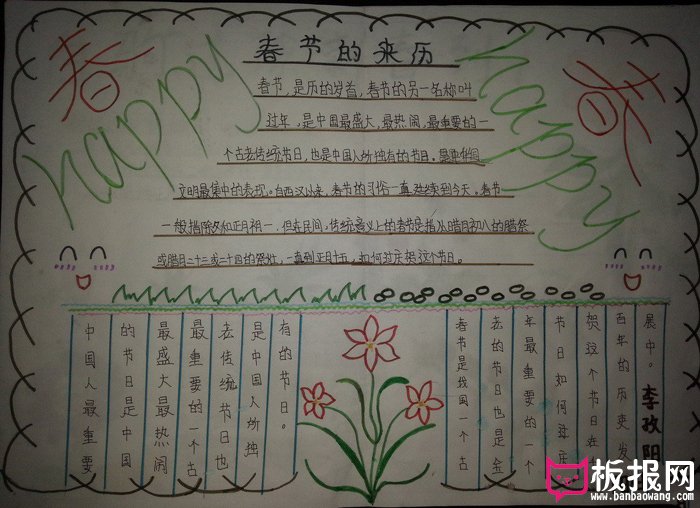 春节的来历
春
happy
happy
春
春节,是历的岁首,春节的另一名称叫
过年,是中国最盛大,最热闹,最重要的一
个古老传统节日,也是中国人所独有的节日。是中华
文明最集中的表现。自西汉以来,春节的习俗一直延续到今天。春节
一般指除夕和正月初一,但在民间,传统意义上的春节是指从腊月初八的腊祭
或腊月二十三或二十四的祭灶,一直到正月十五,如何过庆贺这个节日。
中国人最重要
的节日是中国
最盛大最热闹
最重要的一个古
老传统节日也
是中国人所独
有的节日。
春节是我国一个古
老的节日也是全
年最重要的一个
节日如何过庆
贺这个节日在
百年的历史发
展中。
李孜阳
板报网
www.banbaowang.com